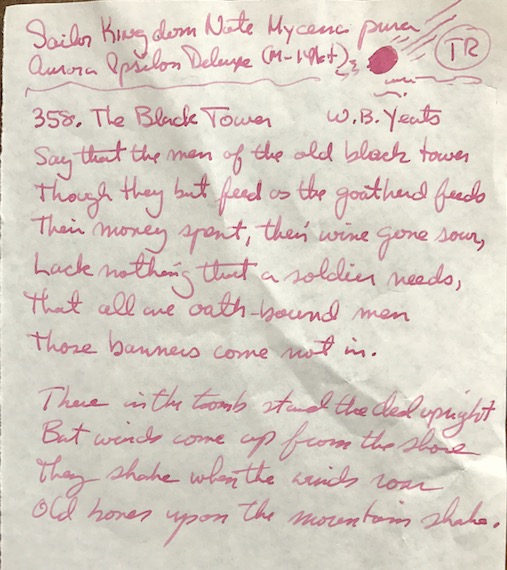 Sailor Kingdom Note Mycena pura
Aurora Ipsilon Deluxe (M-14kt)
TR
358. The Black Tower W.B. Yeats
Say that the men of the old black tower
Though they but feed as the goatherd feeds
Their money spent, their wine gone sour,
Lack nothing that a soldier needs,
That all are oath-bound men
Those banners come not in.
There in the tomb stand the dead upright
But winds come up from the shore
They shake when the winds roar
Old bones upon the mountain shake.